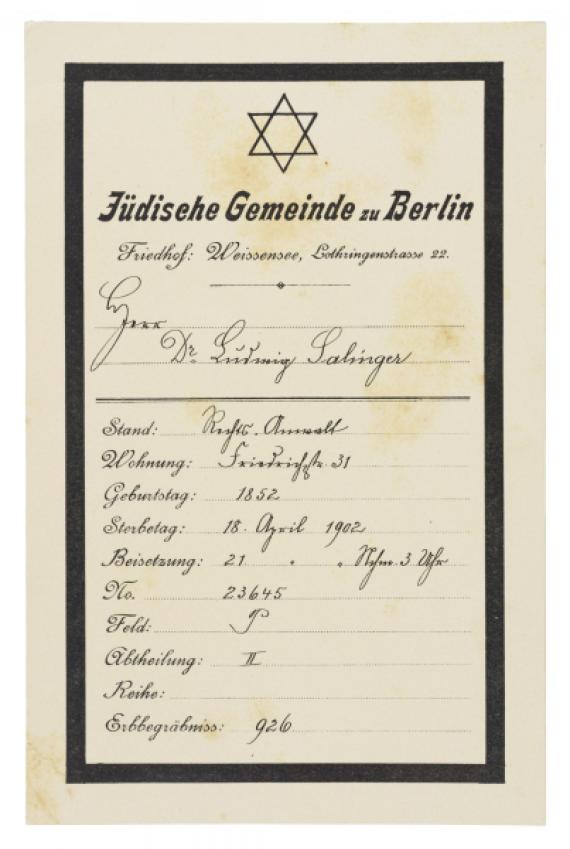 Jüdische Gemeinde zu Berlin
Friedhof: Weissensee, Lothringenstrasse 22.
Herr
Dr. Ludwig Salinger
Stand: Rechts-Anwalt
Wohnung: Friedrichstr. 31
Geburtstag: 1852
Sterbetag: 18. April 1902
Beisetzung: 21 " " Nchm. 3 Uhr
No. 23645
Feld: P
Abtheilung: II
Reihe:
Erbbegräbniss: 926